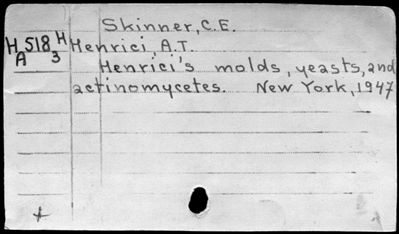 Skinner, C.E.
H 518 H Henrici, A.T.
A 3
Henrici's molds, yeasts, and
actinomycetes. New York, 1947
+